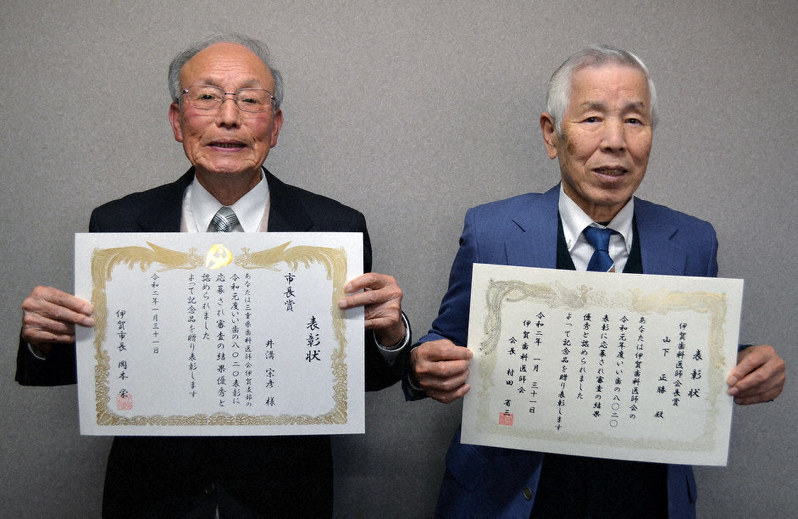 表彰状
市長賞
井溝 宗彦 様
あなたは三重県歯科医師会伊賀支部の
令和元年度いい歯の8020表彰に
応募され審査の結果優秀と
認められました
よって記念品を贈り表彰します
令和二年一月三十一日
伊賀市長 岡本 栄
表彰状
伊賀歯科医師会長賞
山下 正勝 殿
あなたは伊賀歯科医師会の
令和元年度いい歯の八〇二〇
表彰に応募され審査の結果
優秀と認められました
よって記念品を贈り表彰します
令和二年 一月 三十一日
伊賀歯科医師会
会長 村田 省三